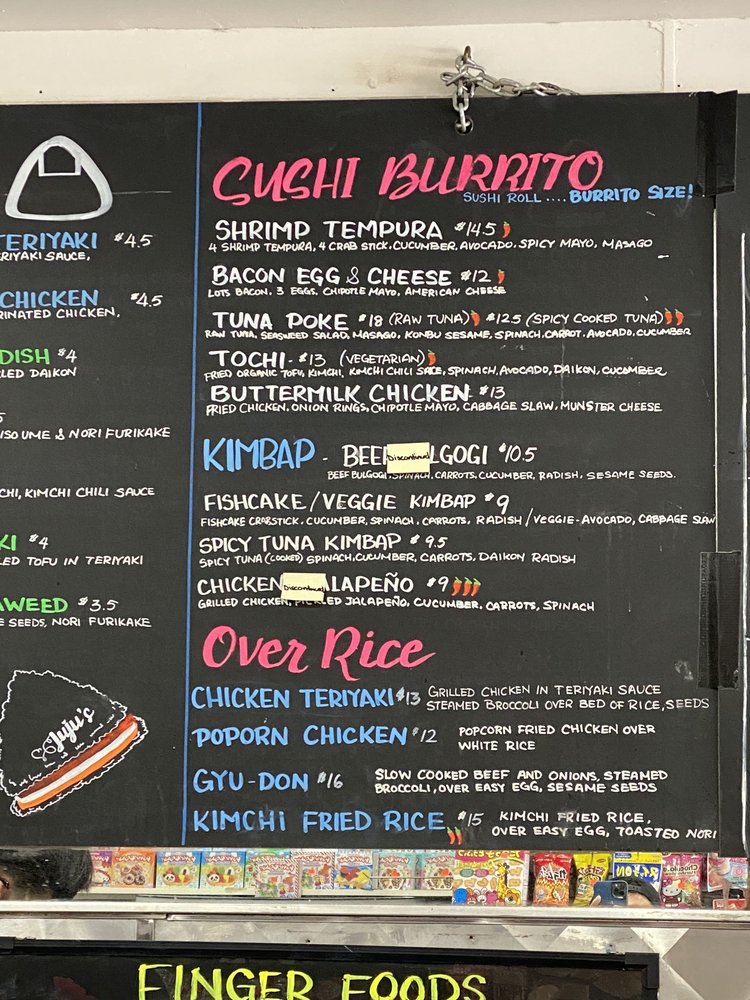 TERIYAKI $4.5
ERIYAKI SAUCE,
CHICKEN $4.5
RINATED CHICKEN,
DISH $4
LED DAIKON
5
ISO UME & NORI FURIKAKE
CHI, KIMCHI CHILI SAUCE
KI $4
LED TOFU IN TERIYAKI
AWEED $3.5
E SEEDS, NORI FURIKAKE
Juju's
SUSHI BURRITO
SUSHI ROLL .... BURRITO SIZE!
SHRIMP TEMPURA $14.5
4 SHRIMP TEMPURA, 4 CRAB STICK, CUCUMBER, AVOCADO, SPICY MAYO, MASAGO
BACON EGG & CHEESE $12
LOTS BACON, 3 EGGS, CHIPOTLE MAYO, AMERICAN CHEESE
TUNA POKE $18 (RAW TUNA) $12.5 (SPICY COOKED TUNA)
RAW TUNA, SEAWEED SALAD, MASAGO, KONBU SESAME, SPINACH, CARROT, AVOCADO, CUCUMBER
TOCHI - $13 (VEGETARIAN)
FRIED ORGANIC TOFU, KIMCHI, KIMCHI CHILI SACE, SPINACH, AVOCADO, DAIKON, CUCUMBER
BUTTERMILK CHICKEN - $13
FRIED CHICKEN, ONION RINGS, CHIPOTLE MAYO, CABBAGE SLAW, MUNSTER CHEESE
KIMBAP - BEEF Discontinued LGOGI $10.5
BEEF BULGOGI, SPINACH, CARROTS, CUCUMBER, RADISH, SESAME SEEDS.
FISHCAKE/VEGGIE KIMBAP $9
FISHCAKE CRABSTICK, CUCUMBER, SPINACH, CARROTS, RADISH / VEGGIE-AVOCADO, CABBAGE SLAW
SPICY TUNA KIMBAP $9.5
SPICY TUNA (COOKED) SPINACH, CUCUMBER, CARROTS, DAIKON RADISH
CHICKEN Discontinued ALAPEÑO $9
GRILLED CHICKEN, PICKLED JALAPEÑO, CUCUMBER, CARROTS, SPINACH
Over Rice
CHICKEN TERIYAKI $13 GRILLED CHICKEN IN TERIYAKI SAUCE
STEAMED BROCCOLI OVER BED OF RICE, SEEDS
POPORN CHICKEN $12 POPCORN FRIED CHICKEN OVER
WHITE RICE
GYU-DON $16 SLOW COOKED BEEF AND ONIONS, STEAMED
BROCCOLI, OVER EASY EGG, SESAME SEEDS
KIMCHI FRIED RICE $15 KIMCHI FRIED RICE,
OVER EASY EGG, TOASTED NORI
FINGER FOODS